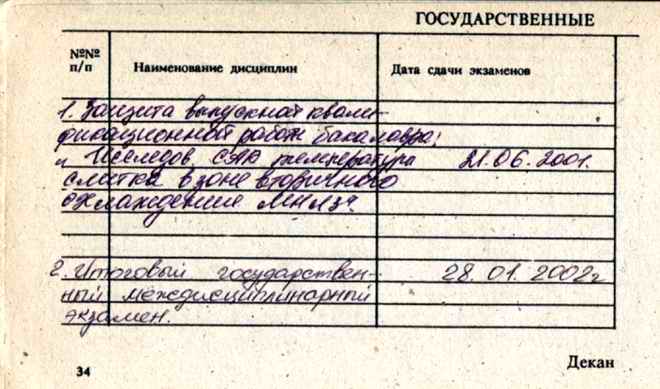 ГОСУДАРСТВЕННЫЕ
№№ п/п
Наименование дисциплин
Дата сдачи экзаменов
1. Защита выпускной квали-
фикационной работ бакалавра:
„ Исследов. САР температура 21.06.2001.
слитка в зоне вторичного
охлаждения МНЛЗ".
2. Итоговый государствен- 28.01.2002г
ный междисциплинарный
экзамен.
34
Декан